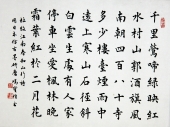 千里鶯啼綠映紅
水村山郭酒旗風
南朝四百八十寺
多少樓臺煙雨中
遠上寒山石徑斜
白雲生處有人家
停車坐愛楓林晚
霜葉紅於二月花
杜牧江南春和山行詩